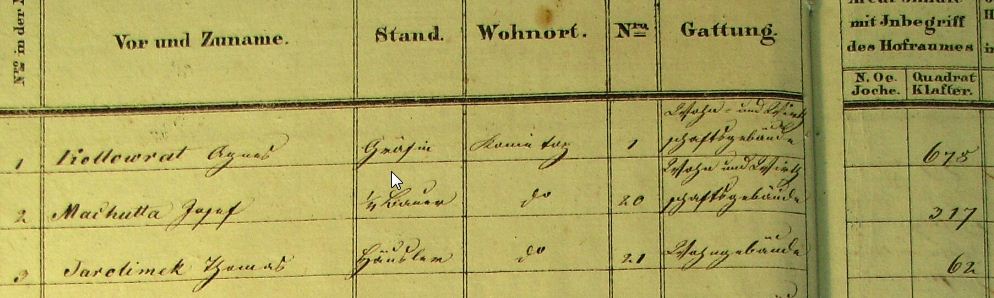 Nro in der
Area
mit Inbegriff
des Hofraumes
Vor und Zuname. Stand. Wohnort. Nro Gattung.
N. Oe. Joche. Quadrat Klafter.
Wohn- und Wirth
1 Kollowrat Agnes Gräfin 1 schaftsgebäude 675
Wohn und Wirth
2 Machutta Josef ¼ Bauer do 20 schaftsgebäude 317
3 Jarolimek Thomas Häusler do 21 Wohngebäude 62